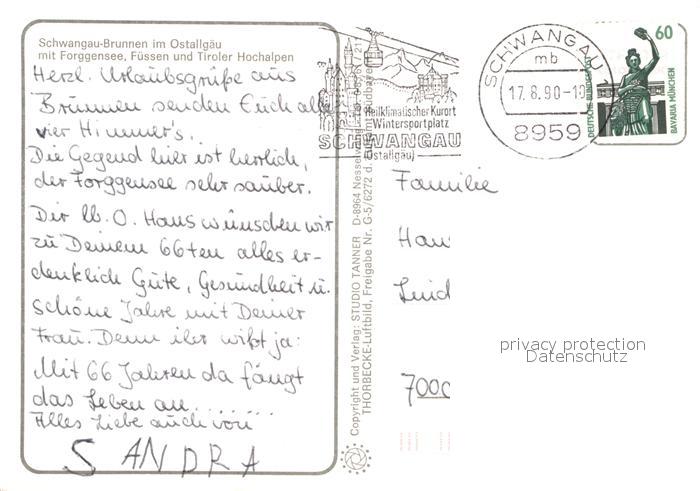 Schwangau-Brunnen im Ostallgäu
mit Forggensee, Füssen und Tiroler Hochalpen
Herzl. Urlaubsgrüße aus
Brunnen senden Euch alle
vier Himmer's.
Die Gegend hier ist herrlich,
der Forggensee sehr sauber.
Dir lb. O. Hans wünschen wir
zu Deinem 66ten alles er-
denklich Gute, Gesundheit u.
schöne Jahre mit Deiner
Frau. Denn ihr wißt ja:
Mit 66 Jahren da fängt
das Leben an........
Alles Liebe auch von
SANDRA
Copyright und Verlag: STUDIO TANNER D-8964 Nesselwang
THORBECKE-Luftbild, Freigabe Nr. G-5/6272 d.
Heilklimatischer Kurort
Wintersportplatz
SCHWANGAU
(Ostallgäu)
SCHWANGAU
mb
17.8.90-10
8959
60
DEUTSCHE BUNDESPOST
BAVARIA MÜNCHEN
Familie
Han
7000
privacy protection
Datenschutz